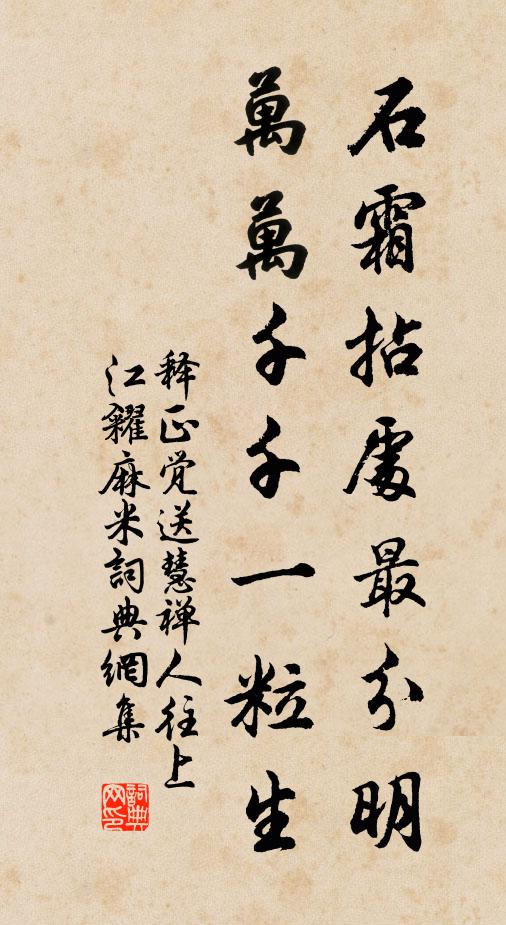 石霜拈處最分明
萬萬千千一粒生
释正觉送慧禅人往上
江糴麻米詞典網集
詞典网印